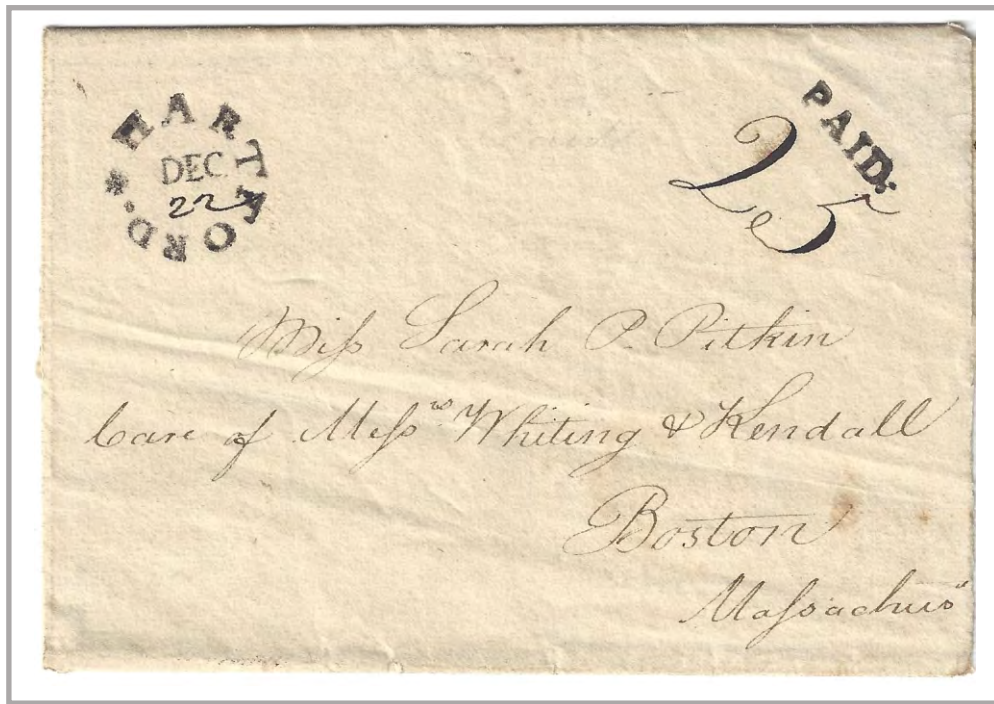 HARTFORD. *
DEC.
22
PAID:
25
Miſs Sarah P. Pitkin
Care of Meſsrs. Whiting & Kendall
Boston
Maſsachus